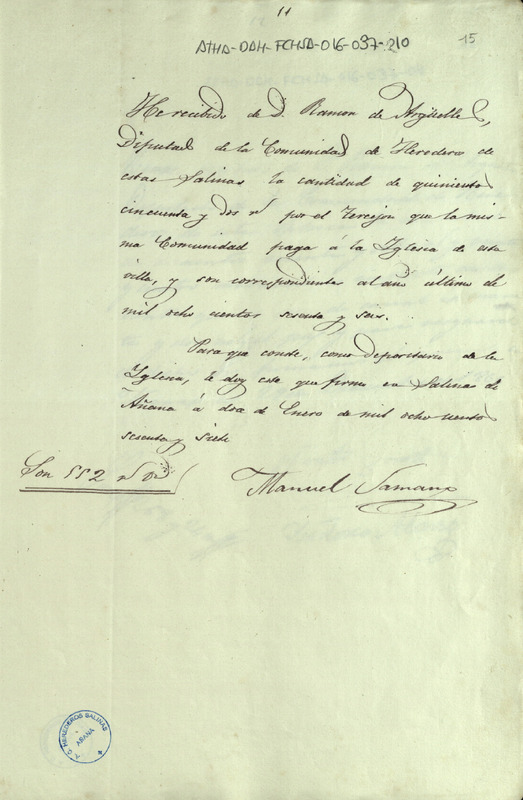 11
ATHA-DAH-FCHSA-016-037-210
15
He recibido de D. Ramon de Argüelles,
Diputado de la Comunidad de Herederos de
estas Salinas la cantidad de quinientos
cincuenta y dos rs por el tercejon que la mis-
ma Comunidad paga á la Yglesia de esta
villa, y son correspondientes al año último de
mil ocho cientos sesenta y seis.
Para que conste, como depositario de la
Yglesia, le doy este que firmo en Salinas de
Añana á dos de Enero de mil ocho cientos
sesenta y siete
Son 552 rs von
Manuel Samano
A. C. HEREDEROS SALINAS
AÑANA